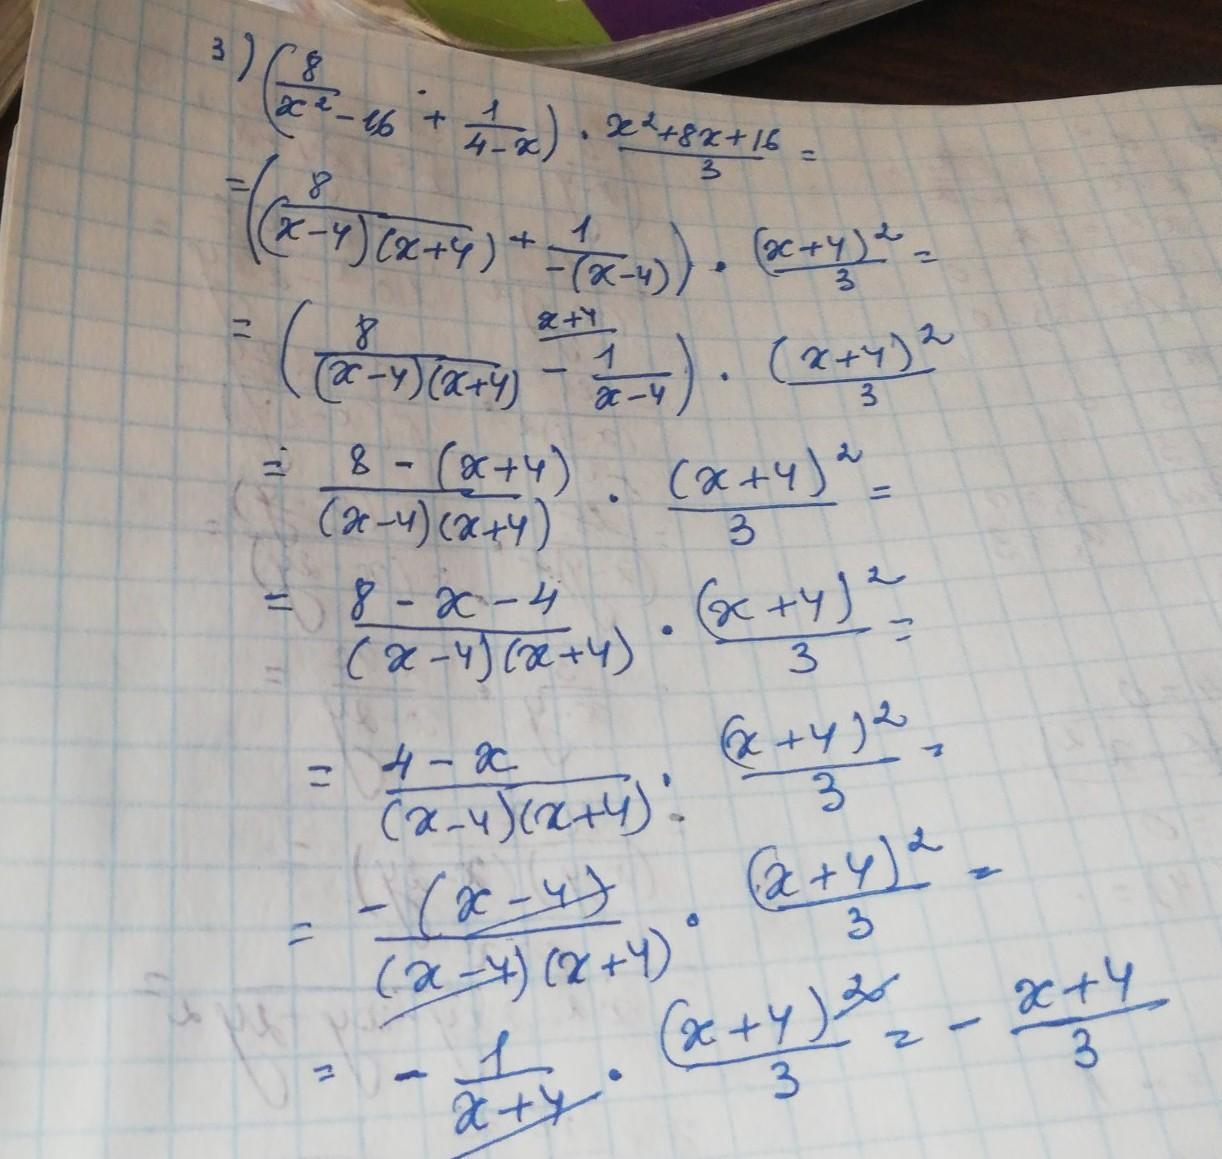 3) (8/(x²-16) + 1/(4-x)) · (x²+8x+16)/3 =
= (8/((x-4)(x+4)) + 1/(-(x-4))) · (x+4)²/3 =
= (8/((x-4)(x+4)) - x+4 1/(x-4)) · (x+4)²/3
= (8-(x+4))/((x-4)(x+4)) · (x+4)²/3 =
= (8-x-4)/((x-4)(x+4)) · (x+4)²/3 =
= (4-x)/((x-4)(x+4)) · (x+4)²/3 =
= -(x-4)/((x-4)(x+4)) · (x+4)²/3 =
= - 1/(x+4) · (x+4)²/3 = - (x+4)/3